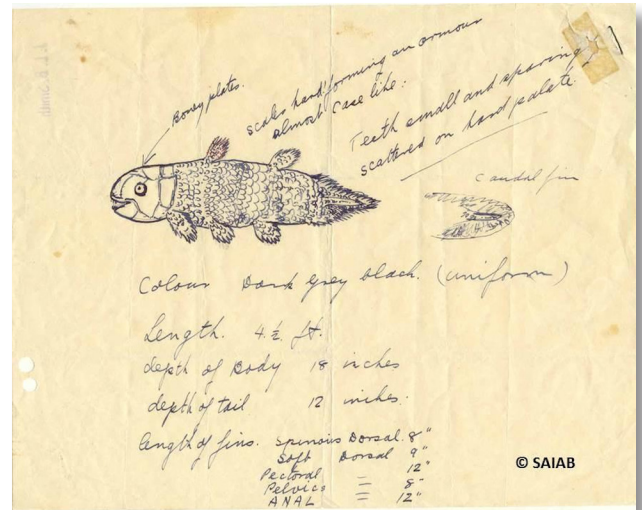 Boney plates.
scales hard forming an armour
almost case like.
Teeth small and sparing
scattered on hard palate
caudal fin
Colour Dark grey black. (uniform)
Length. 4 ½ ft.
depth of Body 18 inches
depth of tail 12 inches.
length of fins. Spinous Dorsal. 8"
Soft Dorsal 9"
Pectoral = 12"
Pelvics = 8"
ANAL = 12"
© SAIAB